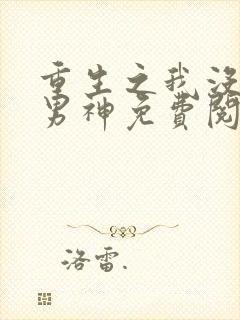 重生之我没
男神免费阅
洛雷.